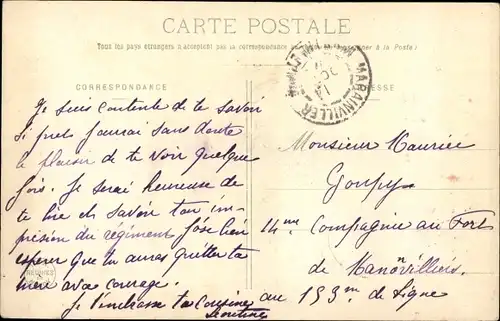 CARTE POSTALE
Tous les pays étrangers n'acceptent pas la correspondance à la Poste
CORRESPONDANCE
MARAINVILLER
Je suis contente de te savoir
si près j'aurai sans doute
le plaisir de te voir quelque
fois. Je serai heureuse de
te lire et savoir ton im
pression du régiment j'ose bien
espérer que tu auras quitter ta
mère avec courage.
Je t'embrasse ta cousine
Monsieur Maurice
Goupy
14me Compagnie au Fort
de Manonvilliers.
au 153me de Ligne